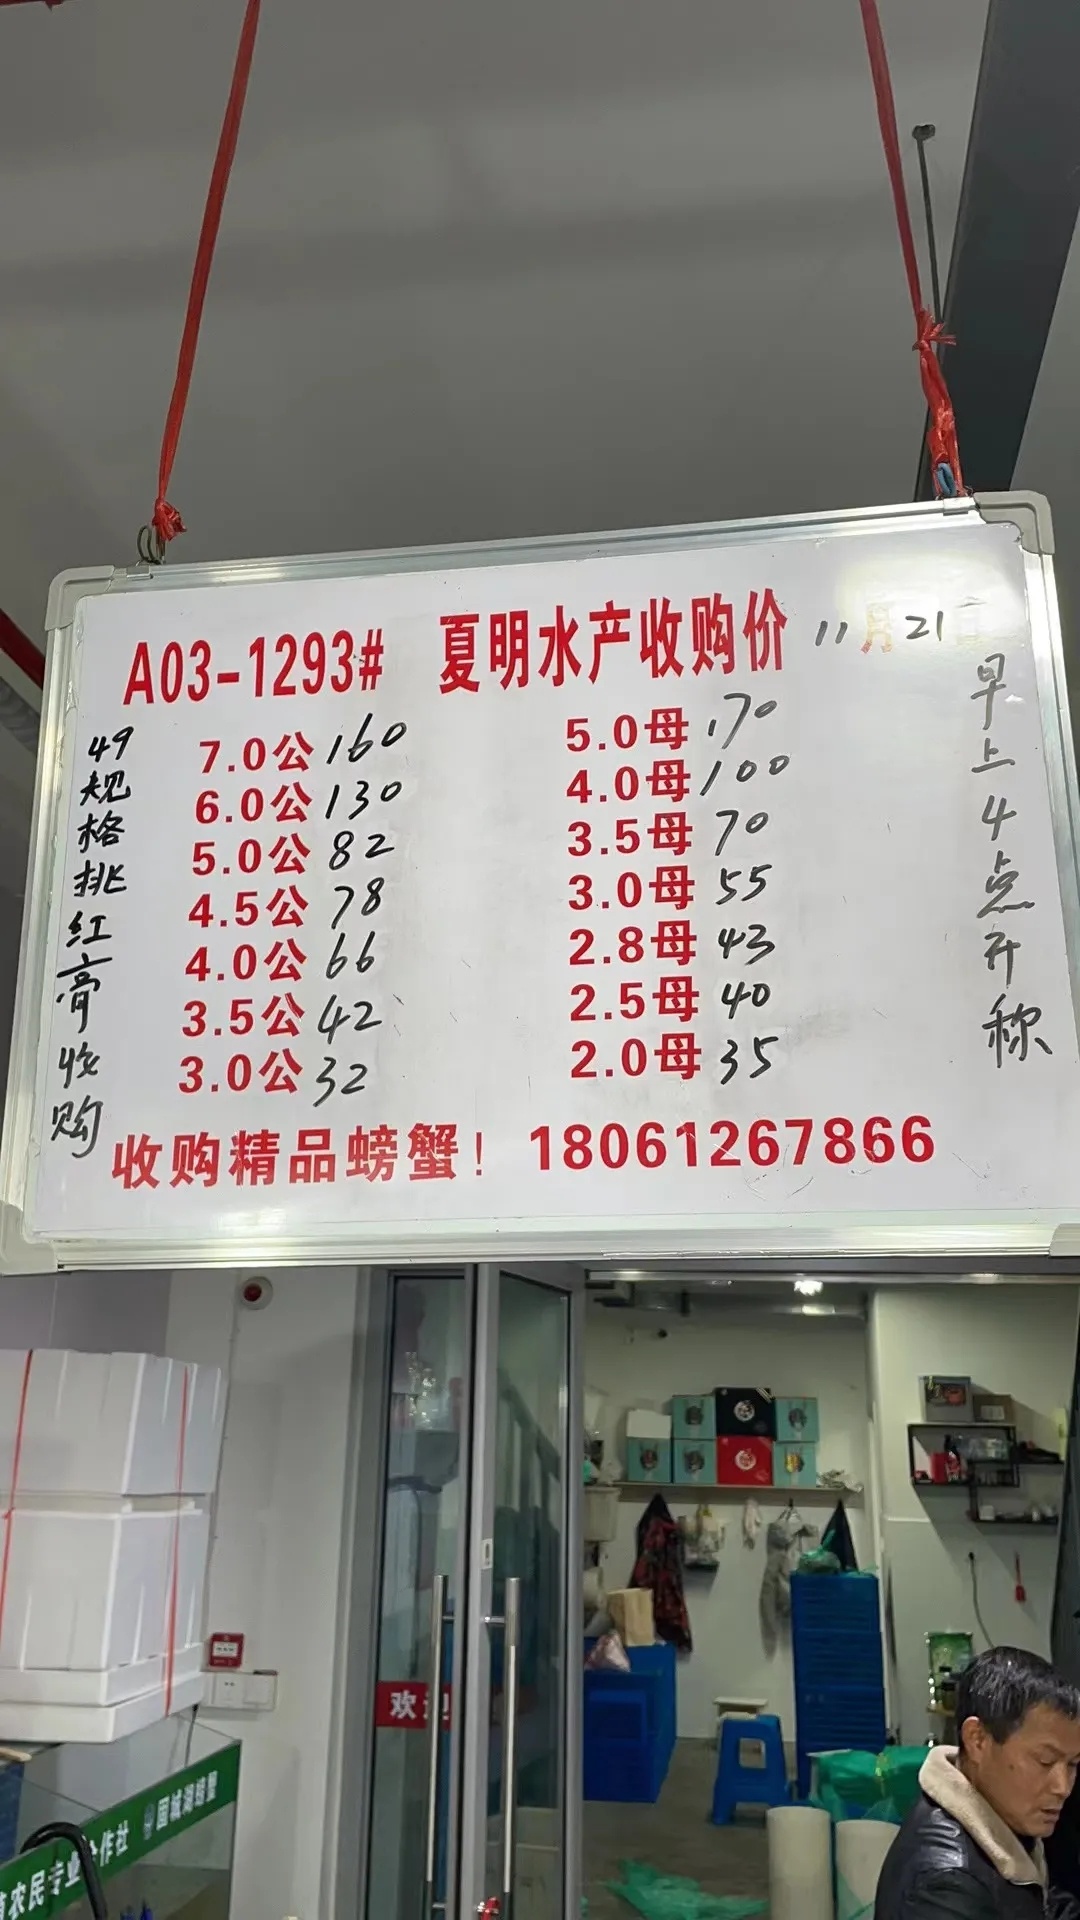 A03-1293# 夏明水产收购价 11月21
49规格挑红膏收购
7.0公 160
6.0公 130
5.0公 82
4.5公 78
4.0公 66
3.5公 42
3.0公 32
5.0母 170
4.0母 100
3.5母 70
3.0母 55
2.8母 43
2.5母 40
2.0母 35
早上4点开称
收购精品螃蟹! 18061267866
欢迎
农民专业合作社 固城湖螃蟹